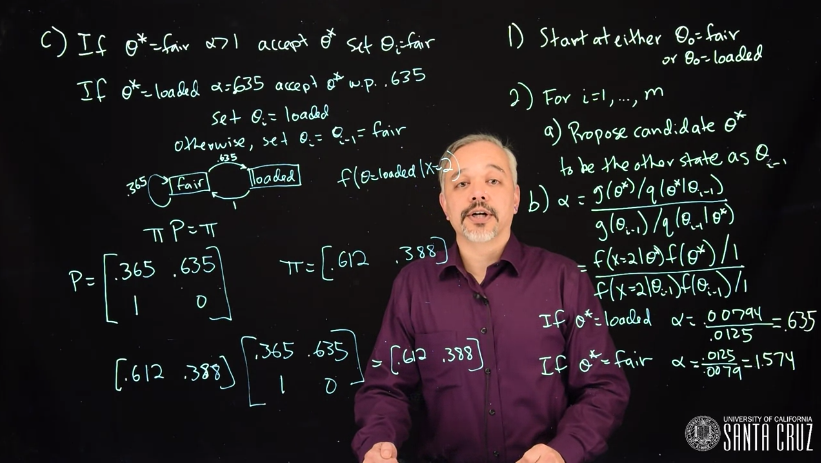 c) If θ*=fair α>1 accept θ* set θi=fair
If θ*=loaded α=.635 accept θ* w.p. .635
set θi=loaded
otherwise, set θi=θi-1=fair
.365 fair .635 loaded 1
f(θ=loaded|x=2)
πP=π
P=[.365 .635
1 0]
π=[.612 .388]
[.612 .388][.365 .635
1 0]=[.612 .388]
1) Start at either θ0=fair
or θ0=loaded
2) For i=1,...,m
a) Propose candidate θ*
to be the other state as θi-1
b) α=g(θ*)/q(θ*|θi-1)
g(θi-1)/q(θi-1|θ*)
=f(x=2|θ*)f(θ*)/1
f(x=2|θi-1)f(θi-1)/1
If θ*=loaded α=.00794/.0125=.635
If θ*=fair α=.0125/.0079=1.574
UNIVERSITY OF CALIFORNIA
SANTA CRUZ